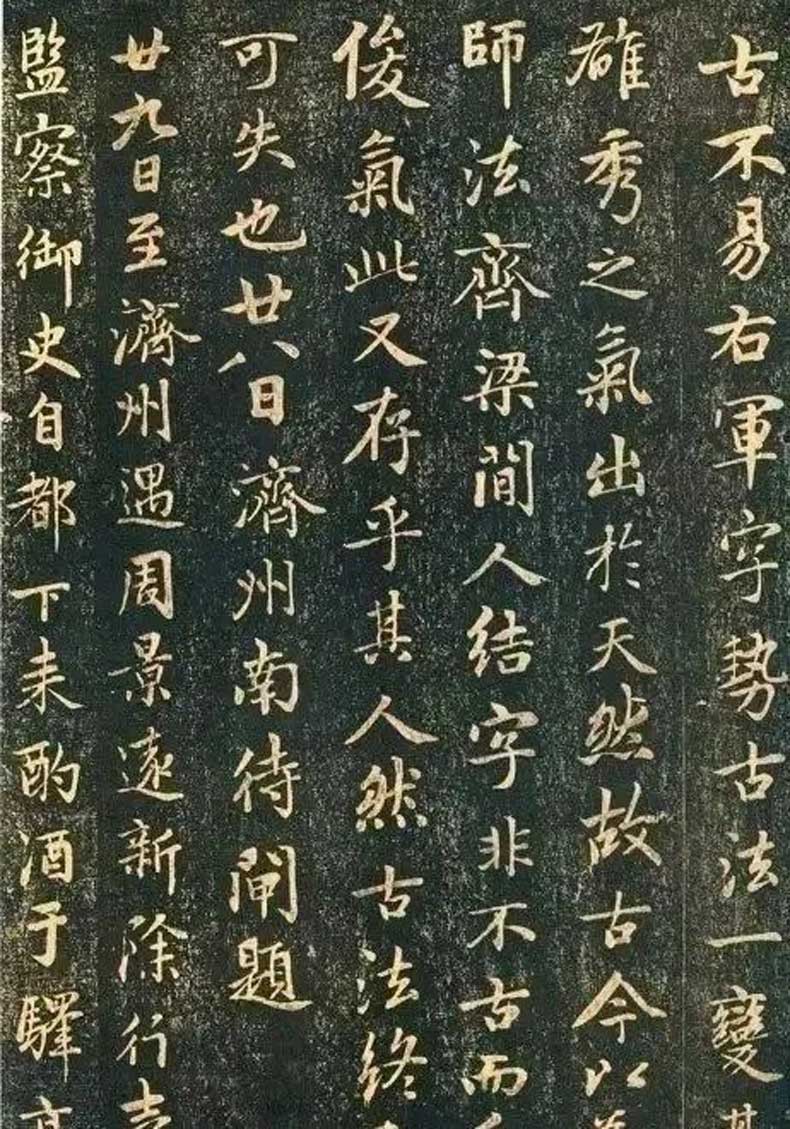 古不易右軍字勢古法一變其
雄秀之氣出於天然故古今以爲
師法齊梁間人結字非不古而
俊氣此又存乎其人然古法終
可失也廿八日濟州南待閘題
廿九日至濟州遇周景遠新除行
監察御史自都下来酌酒于驛